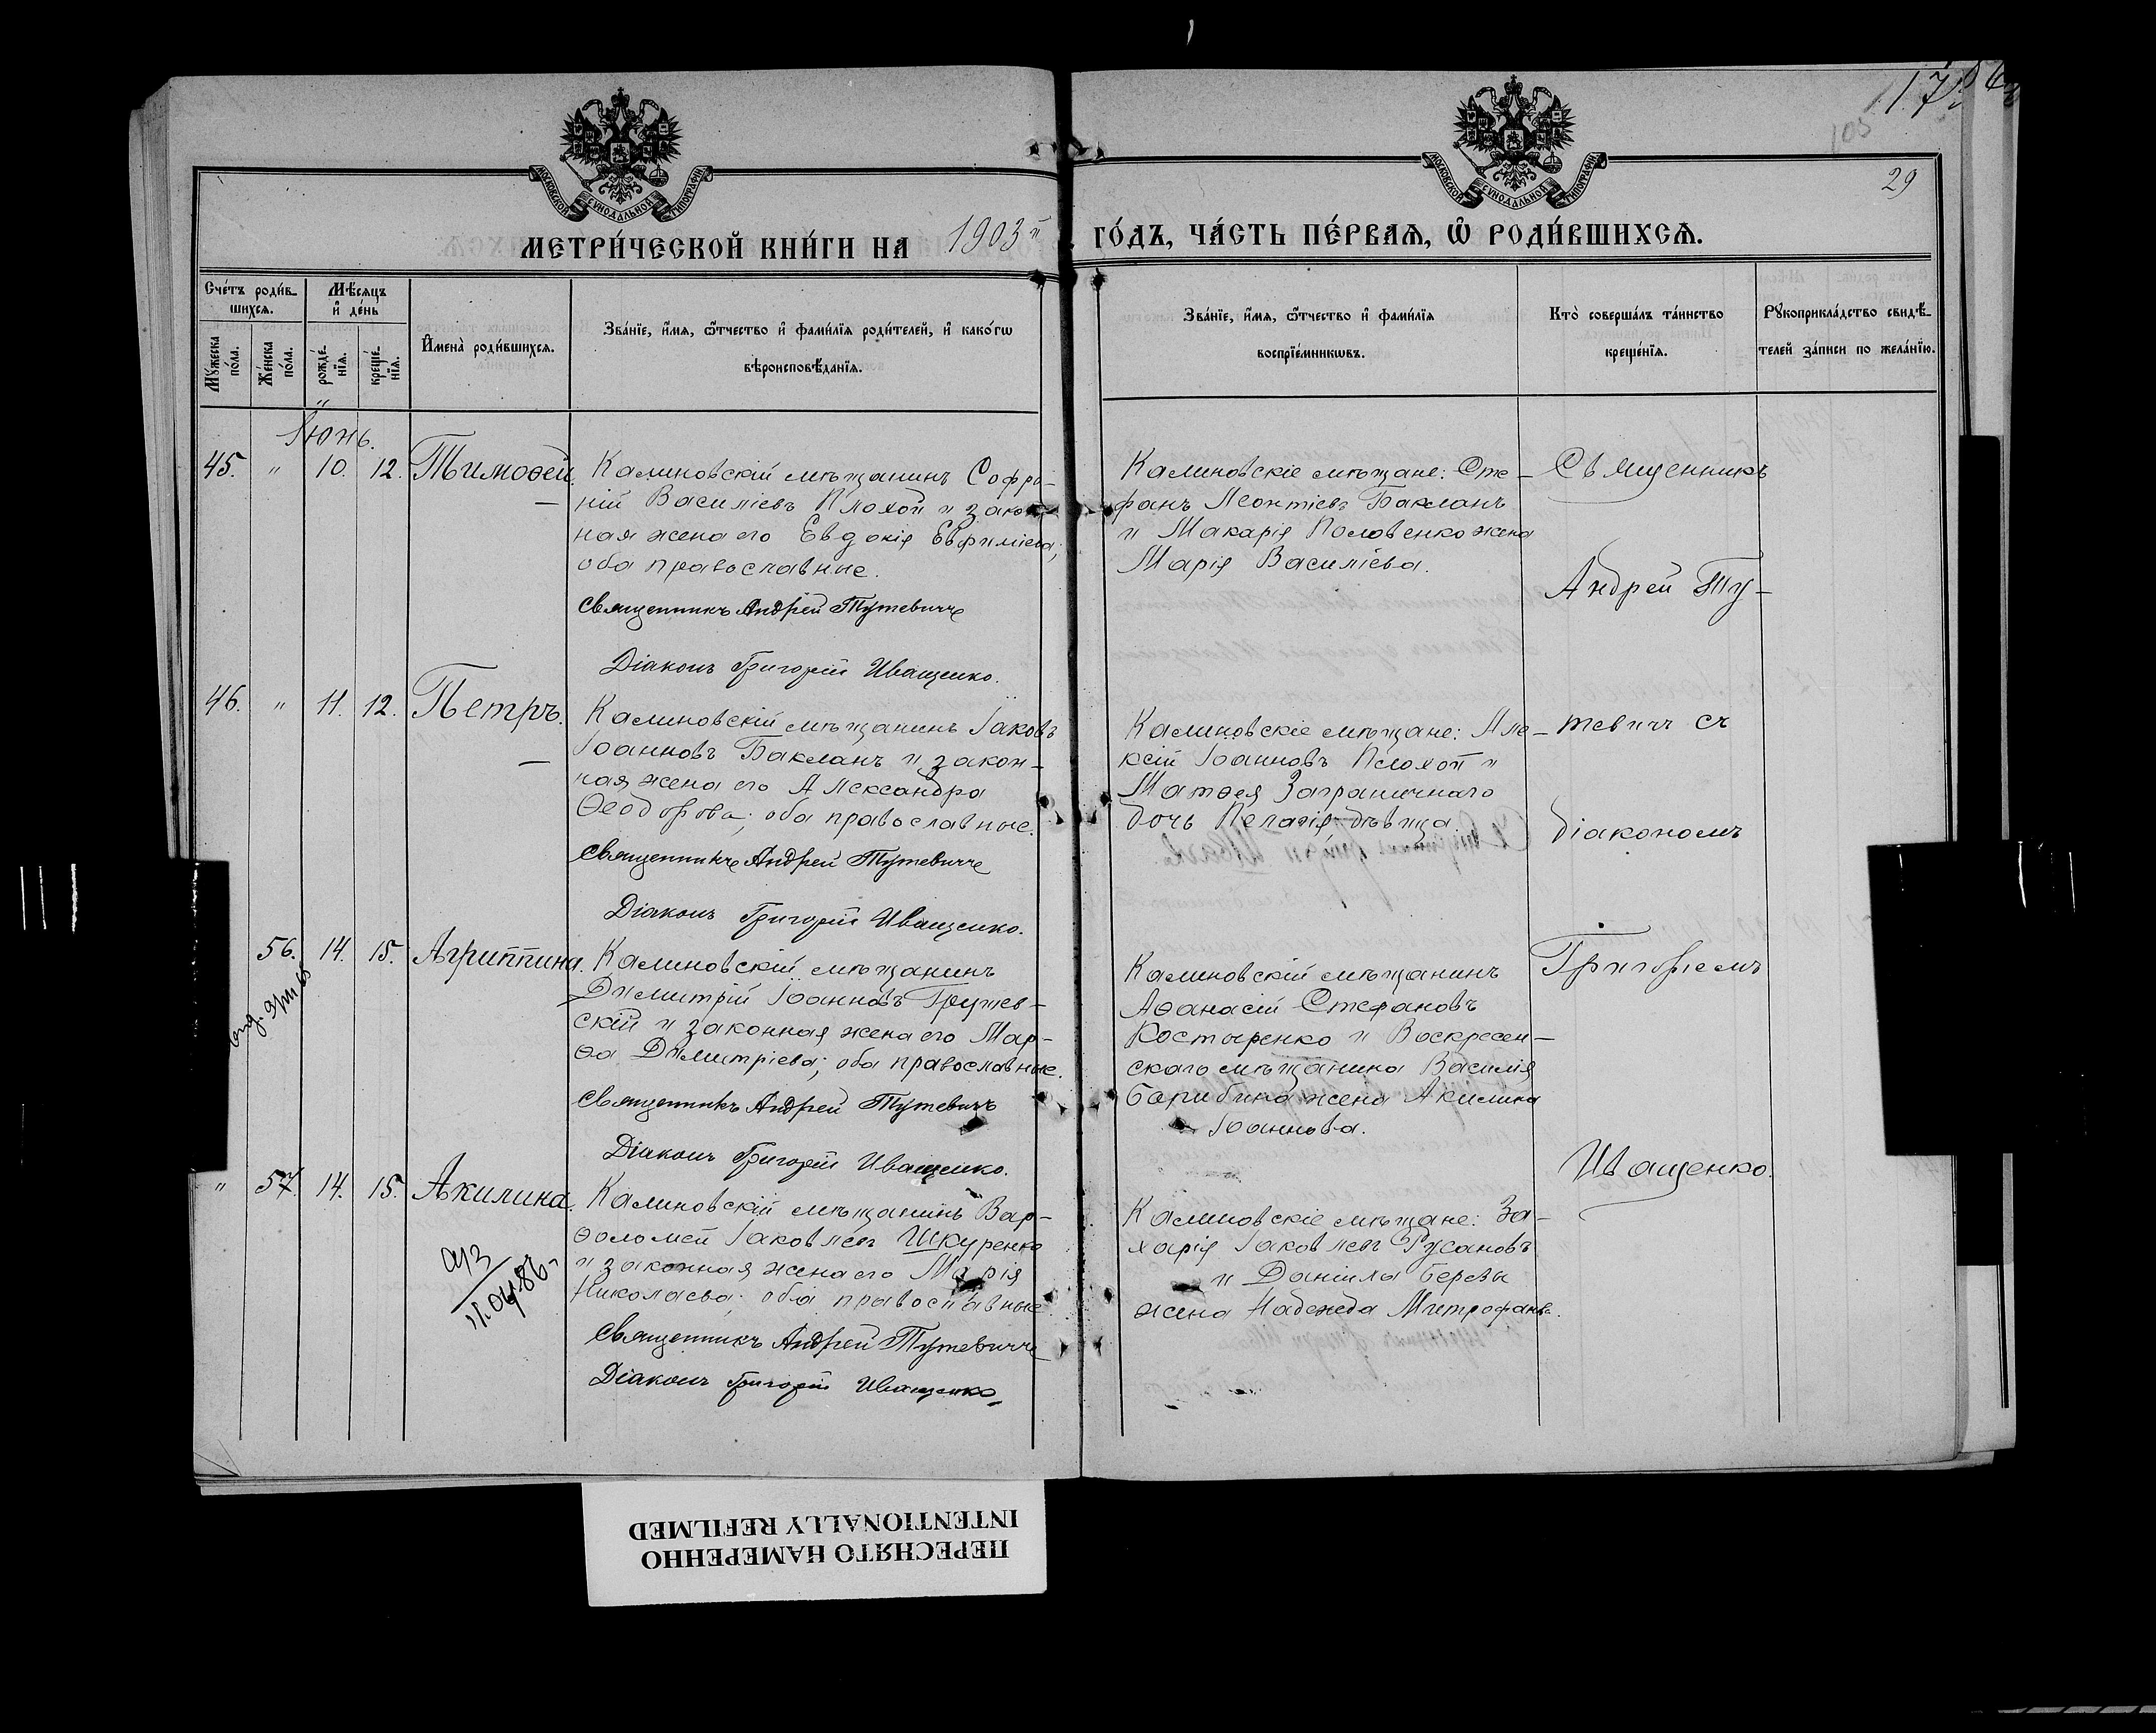 29
МОСКОВСКОЙ СѴНОДАЛЬНОЙ ТИПОГРАФІИ
МОСКОВСКОЙ СѴНОДАЛЬНОЙ ТИПОГРАФІИ
МЕТРИ́ЧЕСКОЙ КНИ́ГИ НА 1903й ГО́ДЪ, ЧА́СТЬ ПЕ́РВАѦ, Ѡ РОДИ́ВШИХСѦ.
Сче́тъ роди́в-
шихсѧ.
Мꙋ́жеска
по́ла.
Же́нска
по́ла.
Мѣ́сѧцъ
и҆ де́нь
рожде́-
нїѧ.
креще́-
нїѧ.
И҆мена̀ роди́вшихсѧ.
Зва́нїе, и҆́мѧ, ѻ҆́тчество и҆ фами́лїѧ роди́телей, и҆ како́гѡ
вѣроисповѣ́данїѧ.
Зва́нїе, и҆́мѧ, ѻ҆́тчество и҆ фами́лїѧ
воспрїе́мникѡвъ.
Кто̀ соверша́лъ та́инство
креще́нїѧ.
Рꙋкоприкла́дство свидѣ́-
телей за́писи по жела́нїю.
Іюнь.
45. " 10. 12. Тимоѳей.
Калиновскій мѣщанинъ Софро-
ній Василіевъ Плохой и закон-
ная жена его Евдокія Евфиміева;
оба православные.
Священникъ Андрей Тутевичъ
Діаконъ Григорій Иващенко.
Калиновскіе мѣщане: Сте-
фанъ Леонтіевъ Бакланъ
и Макарія Половенко жена
Марія Василіева.
Священникъ
Андрей Ту-
46. " 11. 12. Петръ.
Калиновскій мѣщанинъ Іаковъ
Іоанновъ Бакланъ и закон-
ная жена его Александра
Ѳеодорова; оба православные.
Священникъ Андрей Тутевичъ
Діаконъ Григорій Иващенко.
Калиновскіе мѣщане: Але-
ксій Іоанновъ Плохой и
Матѳея Заграничнаго
дочь Пелагія, дѣвица.
тевичъ съ
діакономъ
56. 14. 15. Агриппина.
Калиновскій мѣщанинъ
Димитрій Іоанновъ
скій и законная жена его Мар-
ѳа Димитріева; оба православные.
Священникъ Андрей Тутевичъ
Діаконъ Григорій Иващенко.
Калиновскій мѣщанинъ
Аѳанасій Стефановъ
Костыренко и Воскресен-
скаго мѣщанина Василія
Барибина жена Акилина
Іоаннова.
Григоріемъ
Иващенко.
" 57. 14. 15. Акилина.
Калиновскій мѣщанинъ Вар-
ѳоломей Іаковлевъ Шкуренко
и законная жена его Марія
Николаева; оба православные
Священникъ Андрей Тутевичъ
Діаконъ Григорій Иващенко.
Калиновскіе мѣщане: За-
харія Іаковлевъ Русановъ
и Даніила Березы
жена Надежда Митрофанва.
ПЕРЕСНЯТО НАМЕРЕННО
INTENTIONALLY REFILMED